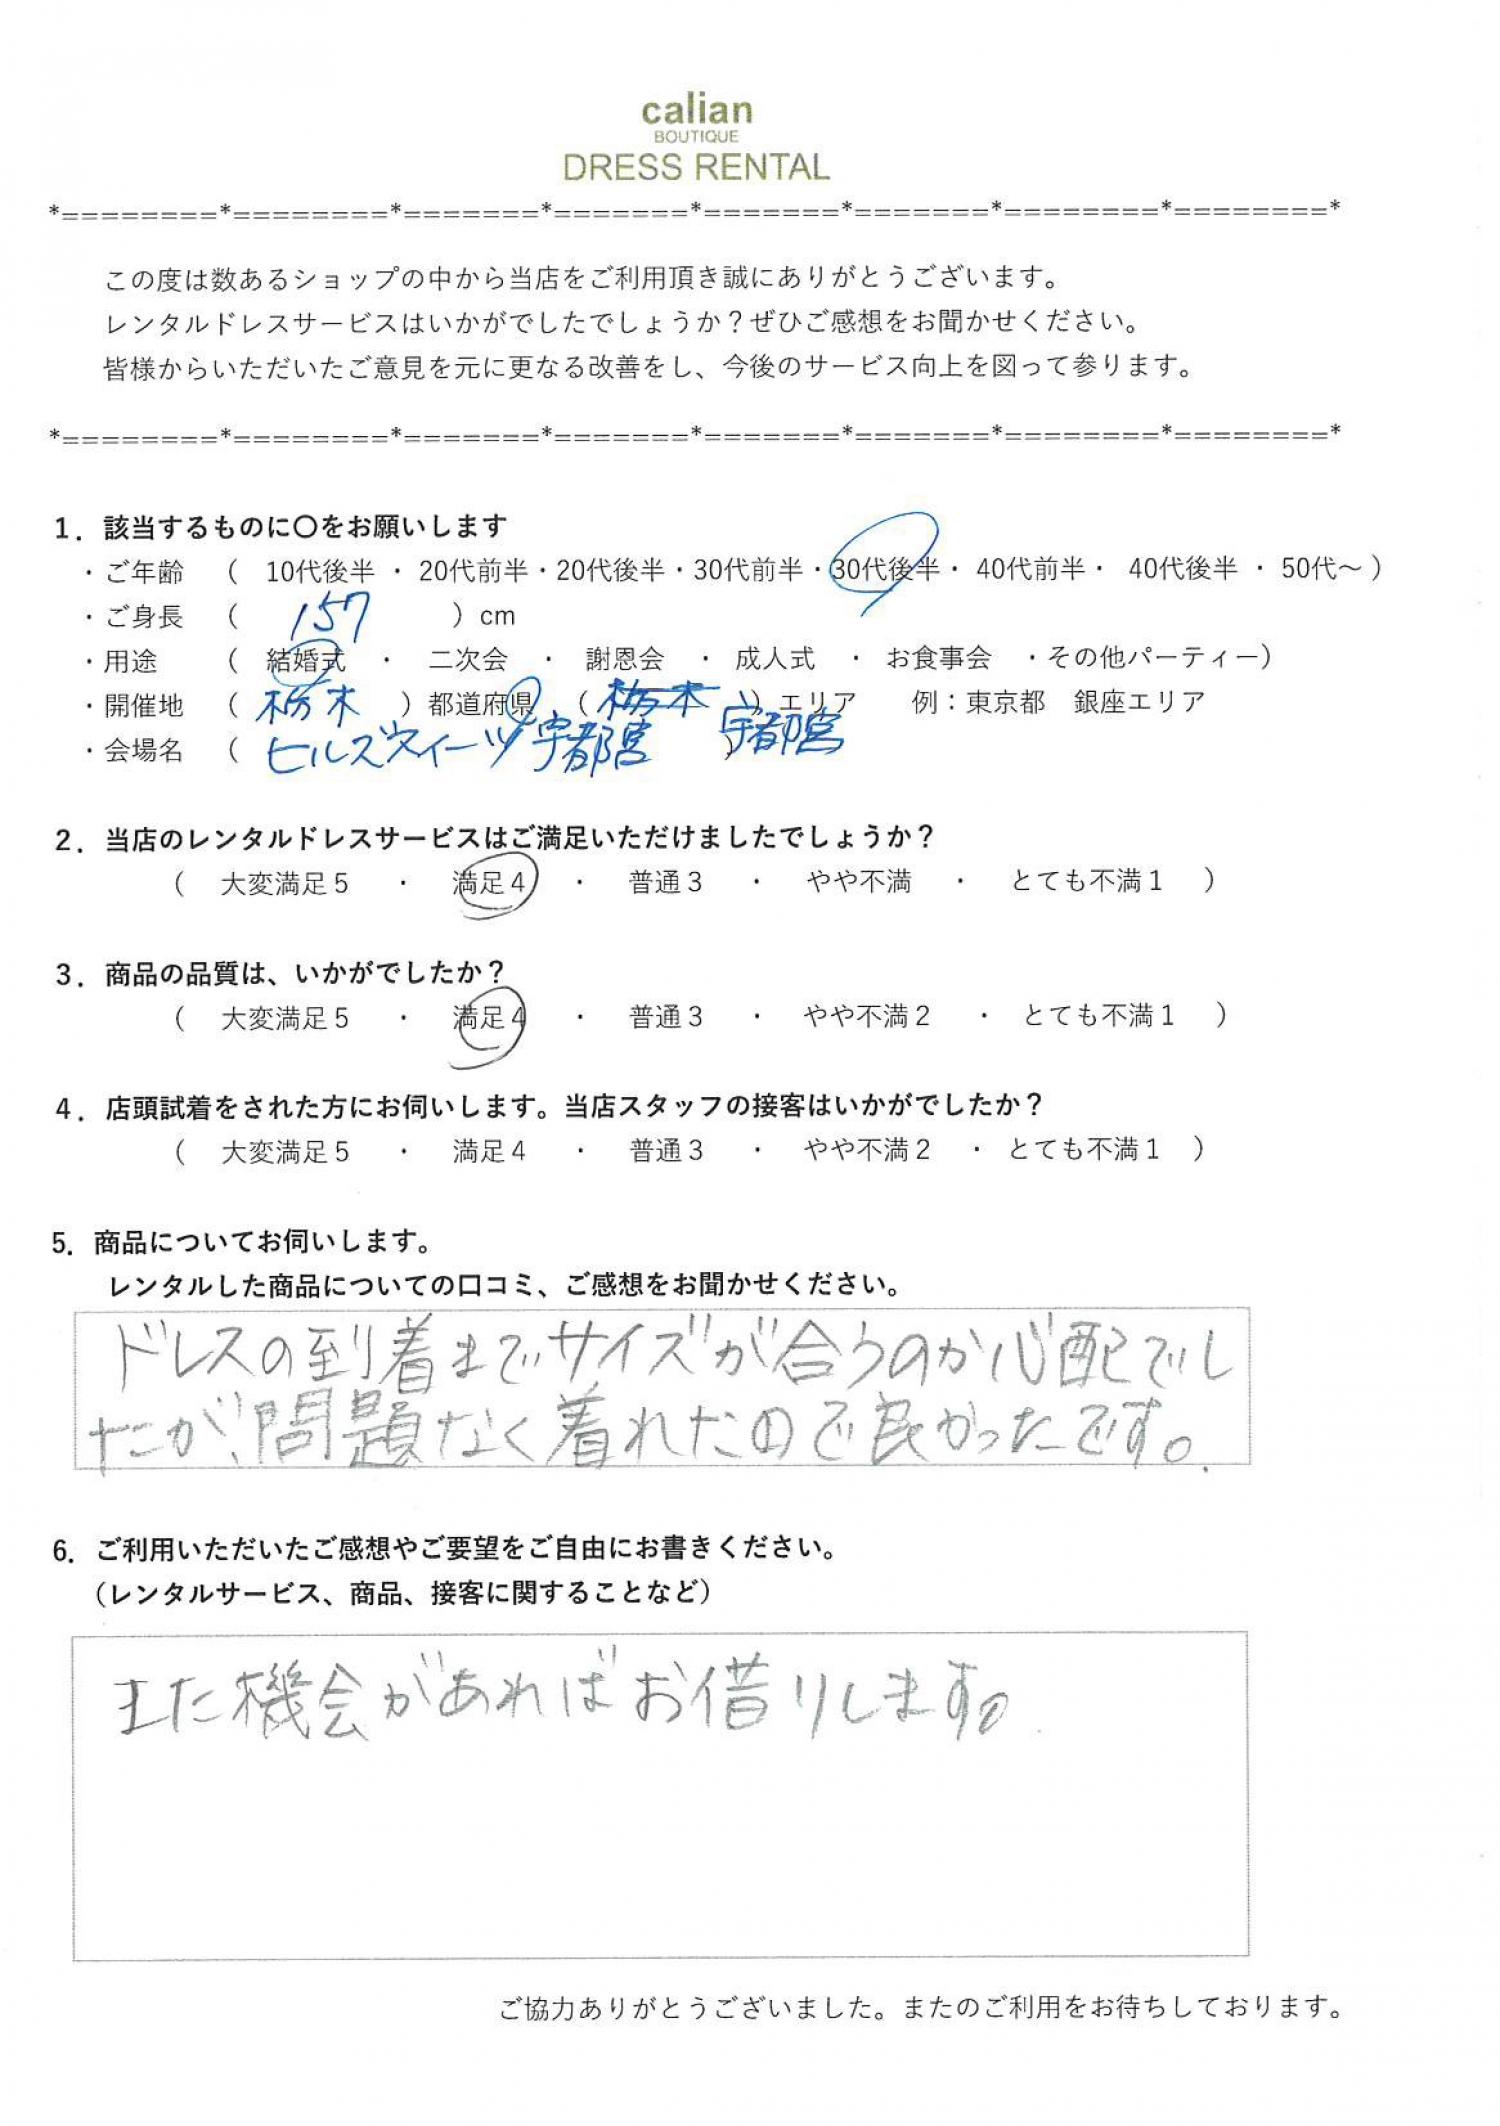 calian
BOUTIQUE
DRESS RENTAL
*========*========*=======*=======*=======*=======*========*========*
この度は数あるショップの中から当店をご利用頂き誠にありがとうございます。
レンタルドレスサービスはいかがでしたでしょうか？ぜひご感想をお聞かせください。
皆様からいただいたご意見を元に更なる改善をし、今後のサービス向上を図って参ります。
*========*========*=======*=======*=======*=======*========*========*
1．該当するものに〇をお願いします
・ご年齢 （ 10代後半 ・ 20代前半・20代後半・30代前半・30代後半・ 40代前半・ 40代後半 ・ 50代～ ）
・ご身長 （ 157 ）cm
・用途 （ 結婚式 ・ 二次会 ・ 謝恩会 ・ 成人式 ・ お食事会 ・その他パーティー）
・開催地 （ 栃木 ）都道府県 （ 栃木 ）エリア 例：東京都 銀座エリア
宇都宮
・会場名 （ ヒルズスイーツ宇都宮 ）
2．当店のレンタルドレスサービスはご満足いただけましたでしょうか？
（ 大変満足５ ・ 満足４ ・ 普通３ ・ やや不満 ・ とても不満１ ）
3．商品の品質は、いかがでしたか？
（ 大変満足５ ・ 満足４ ・ 普通３ ・ やや不満２ ・ とても不満１ ）
4．店頭試着をされた方にお伺いします。当店スタッフの接客はいかがでしたか？
（ 大変満足５ ・ 満足４ ・ 普通３ ・ やや不満２ ・ とても不満１ ）
5．商品についてお伺いします。
レンタルした商品についての口コミ、ご感想をお聞かせください。
ドレスの到着までサイズが合うのか心配でし
たが、問題なく着れたので良かったです。
6．ご利用いただいたご感想やご要望をご自由にお書きください。
（レンタルサービス、商品、接客に関することなど）
また機会があればお借りします。
ご協力ありがとうございました。またのご利用をお待ちしております。